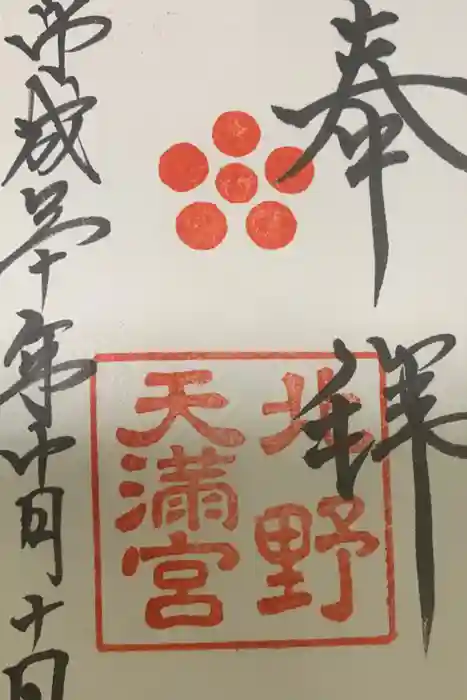 奉拝
北野
天満宮
平成三十年十月十日